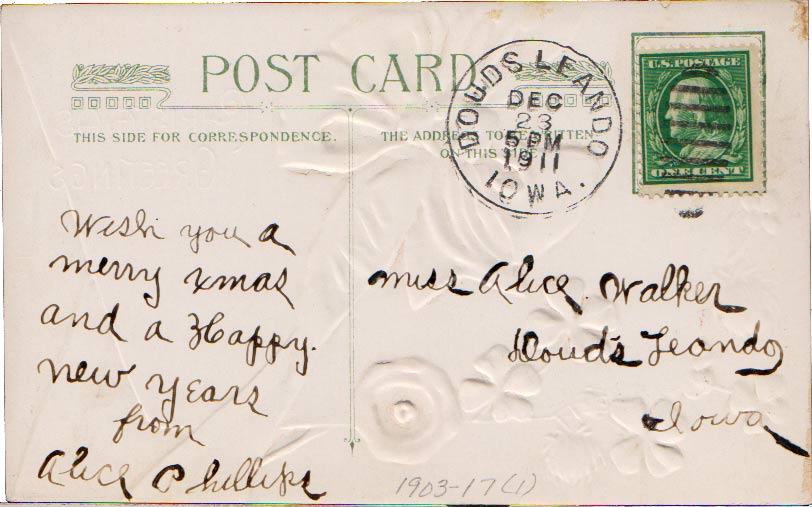 POST CARD
THIS SIDE FOR CORRESPONDENCE.
THE ADDRESS TO BE WRITTEN
ON THIS SIDE
DOUDS LEANDO
DEC
23
5 PM
1911
IOWA.
U.S. POSTAGE
ONE CENT
Wish you a
merry xmas
and a Happy.
new years
from
Alice Phillips
Miss Alice Walker
Douds Leando
Iowa
1903-17(1)
GREETINGS